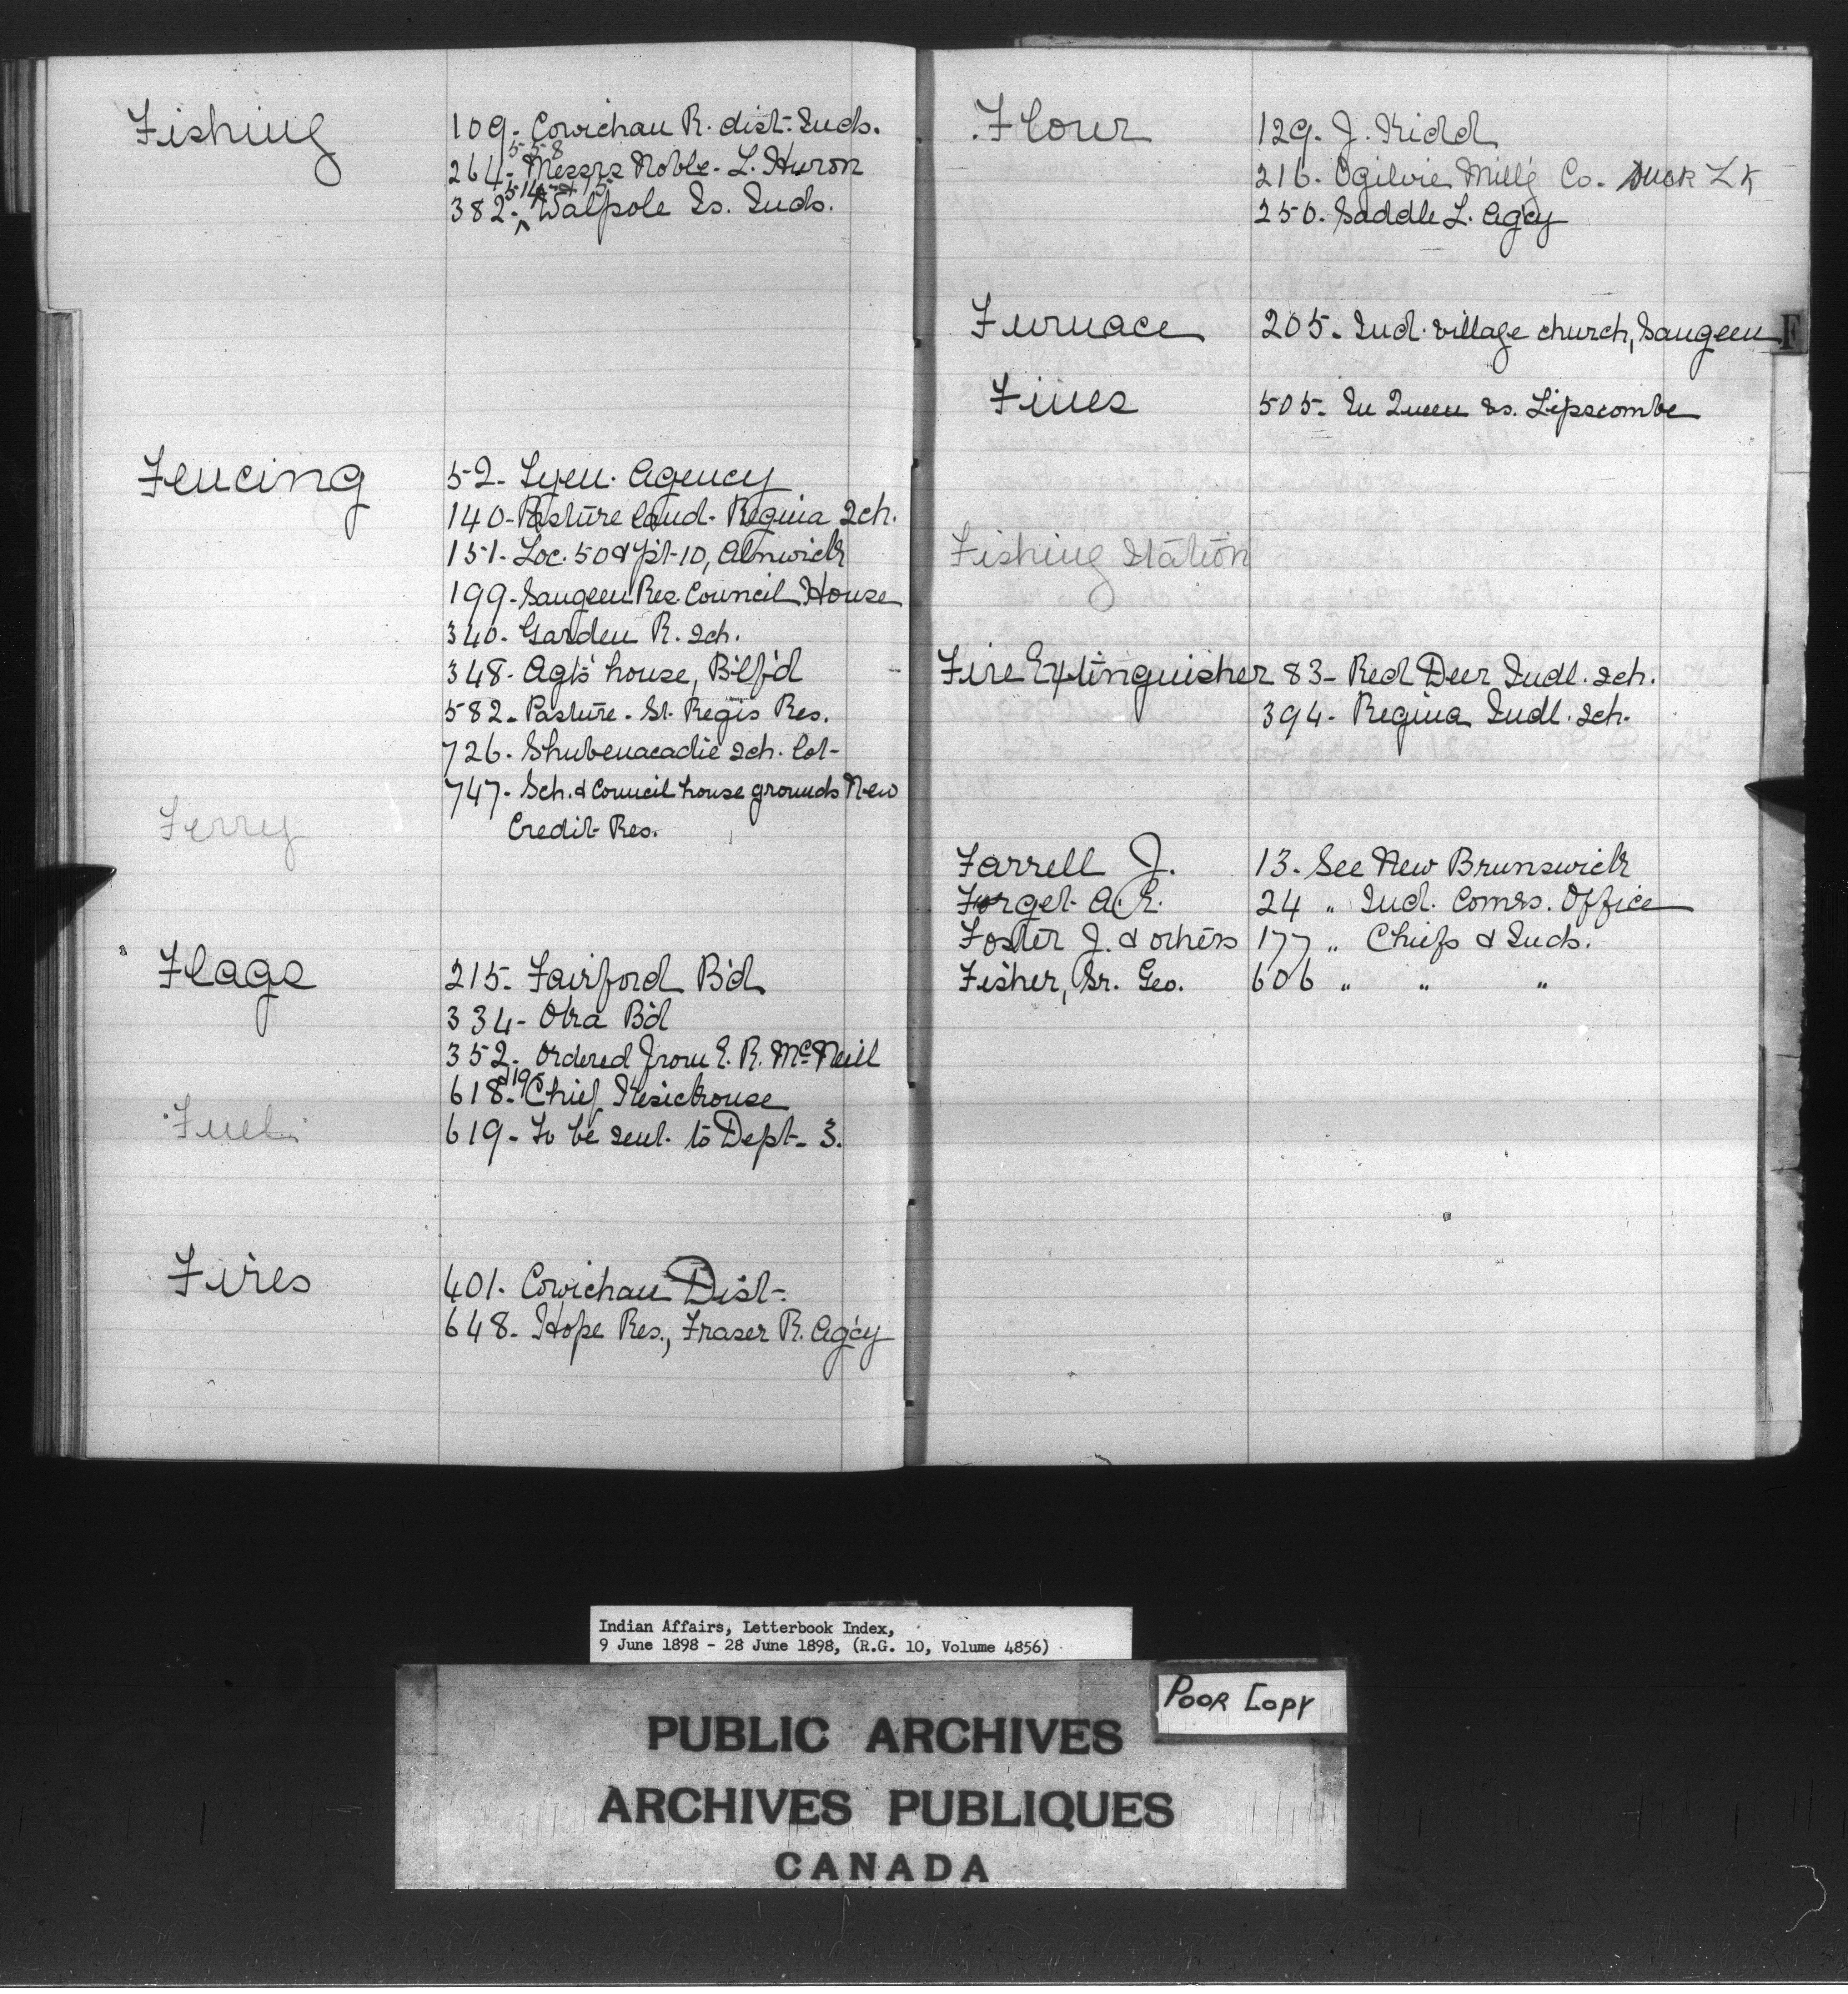 Fishing 109. Cowichan R. dist. Inds.
558
264. Messrs Noble - L. Huron
514 & 15
382. Walpole Is. Inds.
Fencing 52. Tyen. Agency
140. Pasture land - Regina Sch.
151. Loc. 50 & pt 10, Alnwick
199. Saugeen Res. Council House
340. Garden R. Sch.
348. Agt's house, B'tf'd
582. Pasture - St. Regis Res.
726. Shubenacadie Sch. lot
747. Sch. & Council house grounds New
Credit Res.
Ferry
Flags 215. Fairford B'd
334. Oka B'd
352. Ordered from E. R. McNeill
618. Chief Kesickouse
619. To be sent to Dept. 3.
Fuel
Fires 401. Cowichan Dist.
648. Hope Res., Fraser R. Ag'cy
Flour 129. J. Kidd
216. Ogilvie Mill'g Co. Duck Lk
250. Saddle L. Ag'cy
Furnace 205. Ind. village church, Saugeen
F
Fines 505. In Queen vs. Lipscombe
Fishing Station
Fire Extinguisher 83 - Red Deer Indl. Sch.
394. Regina Indl. Sch.
Farrell J. 13. See New Brunswick
Forget A. E. 24 " Ind. Comrs. Office
Foster J. & others 177 " Chiefs & Inds.
Fisher, Sr. Geo. 606 " " "
Indian Affairs, Letterbook Index,
9 June 1898 - 28 June 1898, (R.G. 10, Volume 4856)
Poor Copy
PUBLIC ARCHIVES
ARCHIVES PUBLIQUES
CANADA